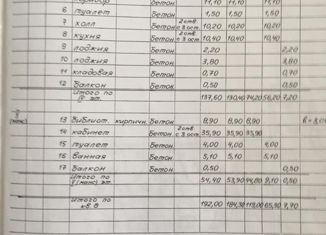 бетон 11,10 11,10 11,10
6 туалет бетон 1,50 1,50 1,50
7 холл бетон 2 ств. с 3 ост. 10,20 10,20 10,20
8 кухня бетон 2 ств. с 3 ост. 10,40 10,40 10,40
9 лоджия бетон 2,20 2,20
10 лоджия бетон 3,80 3,80
11 кладовая бетон 0,70 0,70
12 балкон бетон 0,50 0,50
Итого по эт. 137,60 130,40 74,20 56,20 7,20
13 библиот. кирпичн. бетон 8,90 8,90 8,90
14 кабинет бетон 2 ств. с 3 ост. 35,90 35,90 35,90
15 туалет бетон 4,00 4,00 4,00
16 ванная бетон 5,10 5,10 5,10
17 балкон бетон 0,50 0,50
Итого по эт. 54,40 53,90 44,80 9,10 0,50
Итого по кв. 8 192,00 184,30 119,00 65,30 7,70